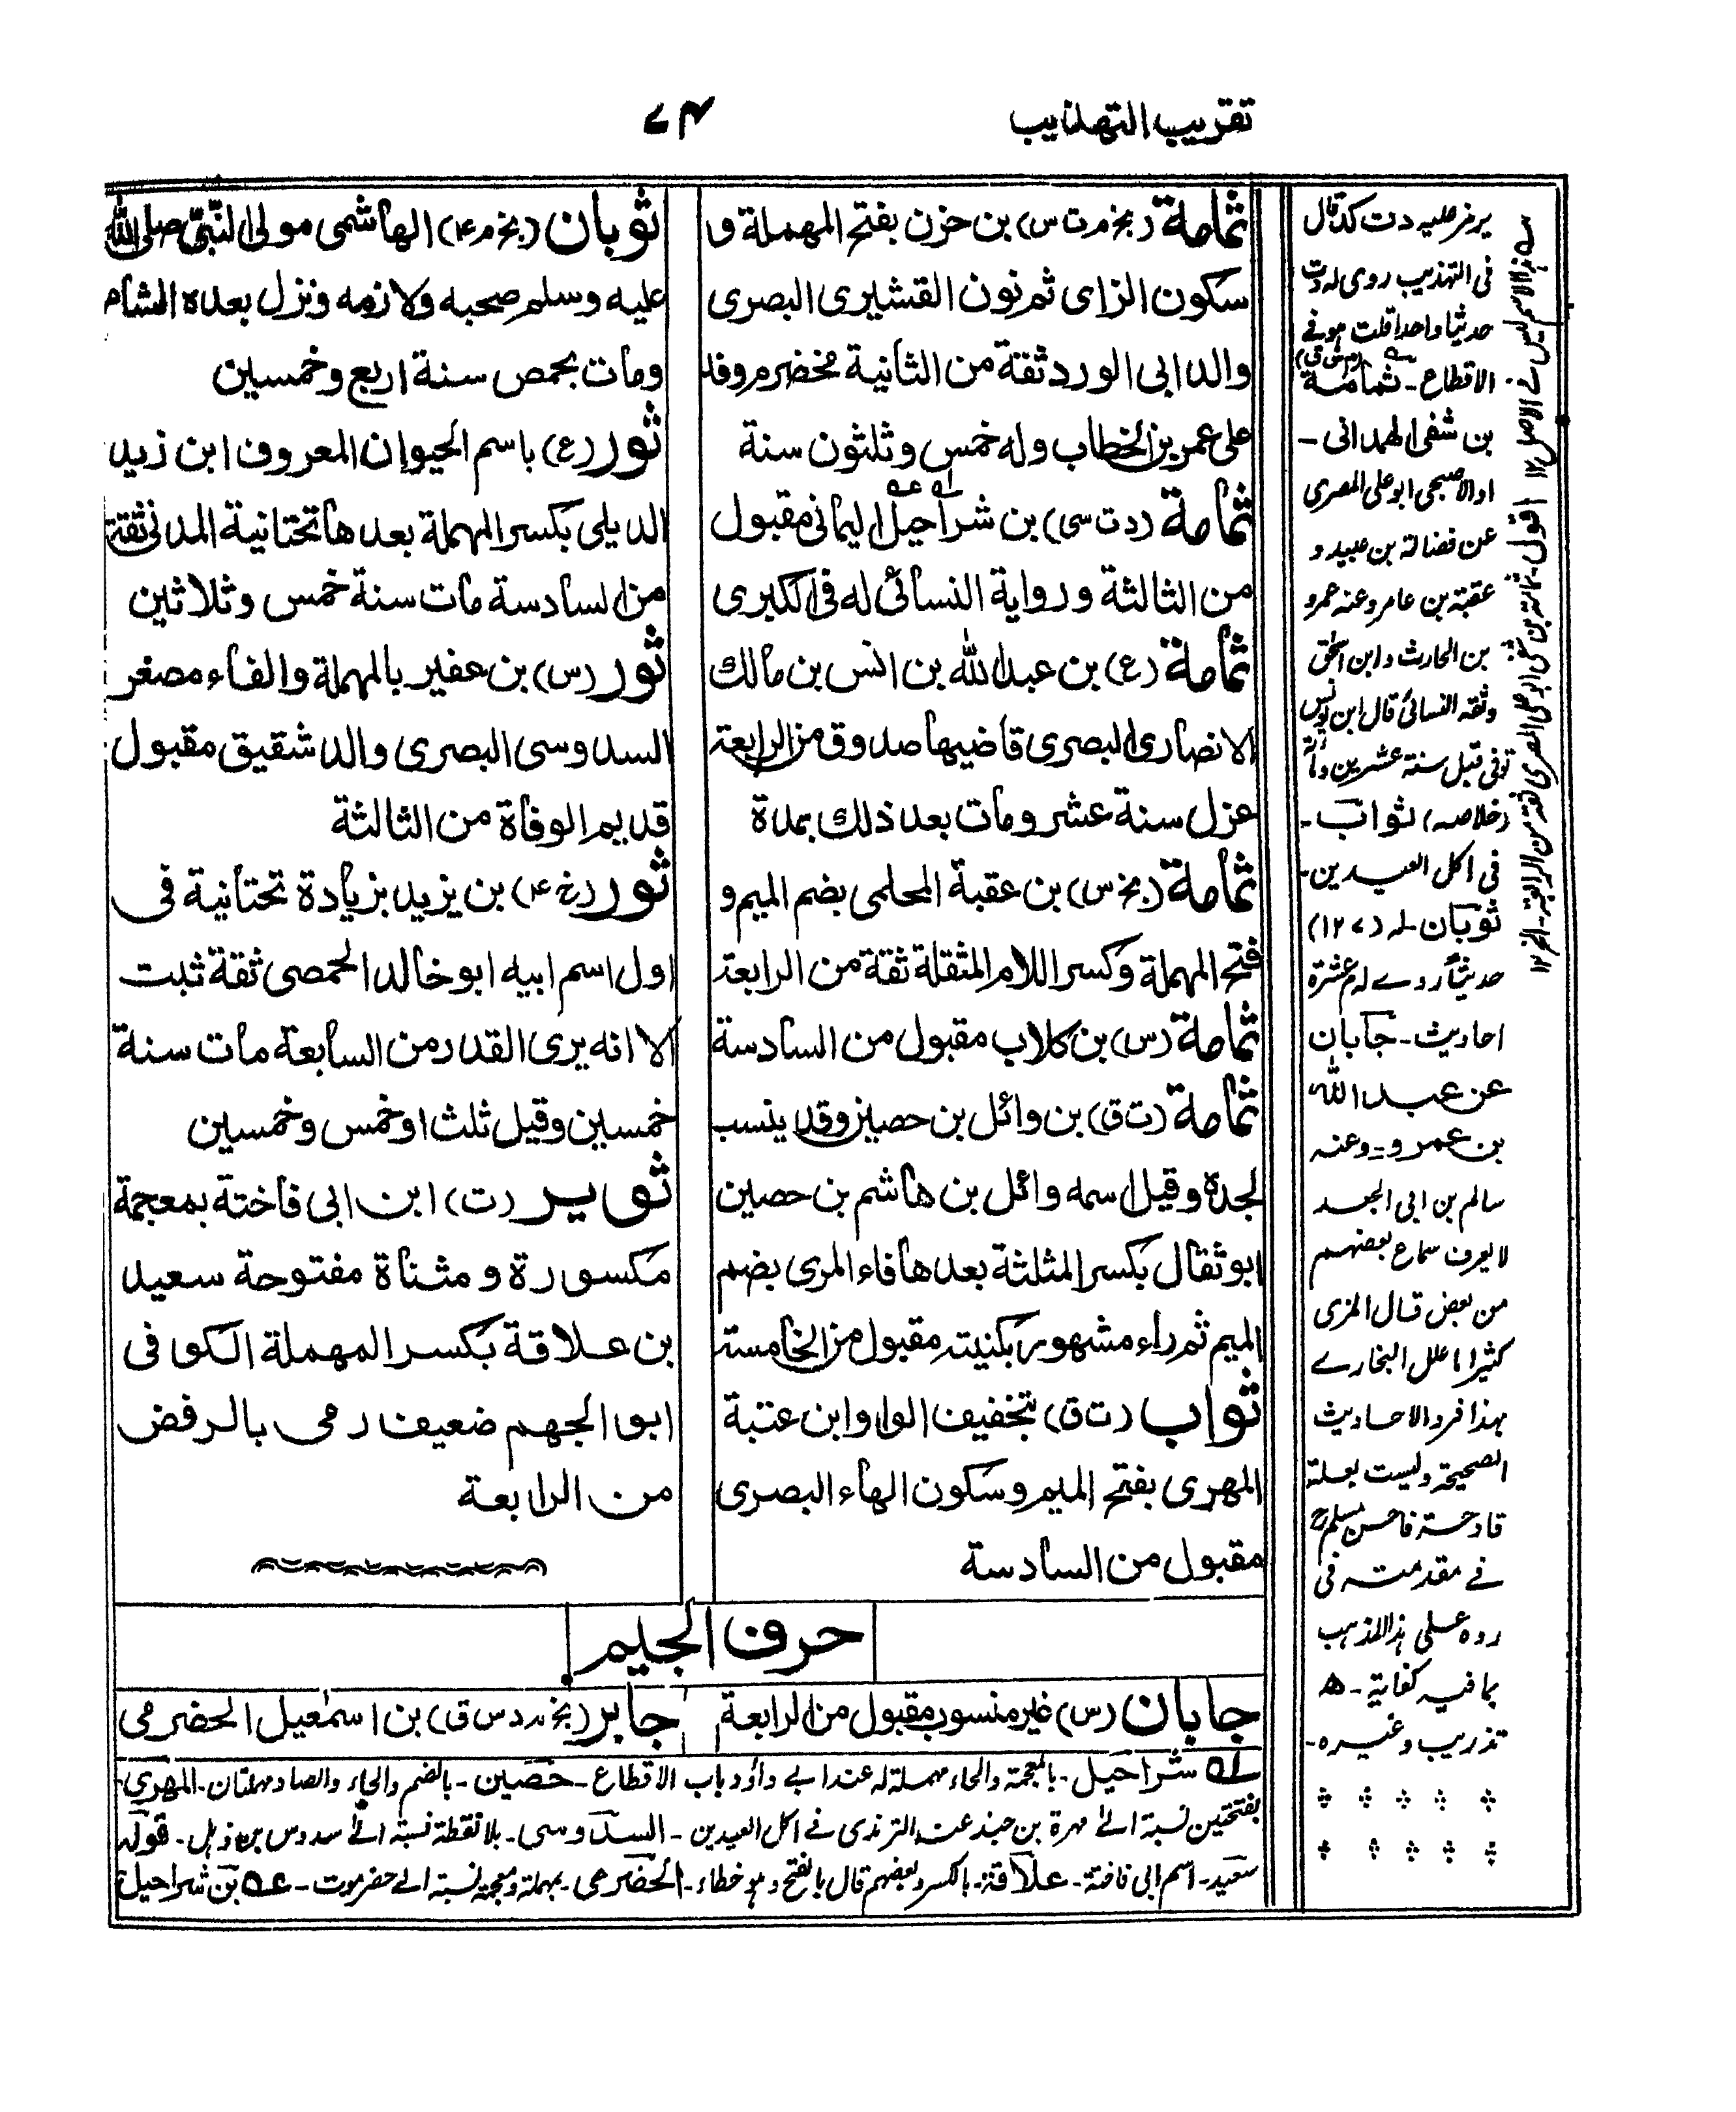 تقريب التهذيب
٧٤
ثمامة (بخ م ت س) بن حزن بفتح المهملة و
سكون الزاى ثم نون القشيرى البصرى
والد ابى الورد ثقة من الثانية مخضرم وفد
على عمر بن الخطاب وله خمس وثلثون سنة
ثمامة (د ت سى) بن شراحيل اليمانى مقبول
من الثالثة ورواية النسائى له فى الكبرى
ثمامة (ع) بن عبد الله بن انس بن مالك
الانصارى البصرى قاضيها صدوق من الرابعة
عزل سنة عشر ومات بعد ذلك بمدة
ثمامة (بخ س) بن عقبة المحلمى بضم الميم و
فتح المهملة وكسر اللام المثقلة ثقة من الرابعة
ثمامة (س) بن كلاب مقبول من السادسة
ثمامة (ت ق) بن وائل بن حصين وقد ينسب
لجده وقيل اسمه وائل بن هاشم بن حصين
ابو ثقال بكسر المثلثة بعدها فاء المرى بضم
الميم ثم راء مشهور بكنيته مقبول من الخامسة
ثواب (ت ق) بتخفيف الواو ابن عتبة
المهرى بفتح الميم وسكون الهاء البصرى
مقبول من السادسة
ثوبان (بخ م ۴) الهاشمى مولى النبى صلى الله
عليه وسلم صحبه ولازمه ونزل بعده الشام
ومات بحمص سنة اربع وخمسين
ثور (ع) باسم الحيوان المعروف ابن زيد
الديلى بكسر المهملة بعدها تحتانية المدنى ثقة
من السادسة مات سنة خمس وثلاثين
ثور (س) بن عفير بالمهملة والفاء مصغر
السدوسى البصرى والد شقيق مقبول
قديم الوفاة من الثالثة
ثور (خ ۴) بن يزيد بزيادة تحتانية فى
اول اسم ابيه ابو خالد الحمصى ثقة ثبت
الا انه يرى القدر من السابعة مات سنة
خمسين وقيل ثلث او خمس وخمسين
ثوير (ت) ابن ابى فاختة بمعجمة
مكسورة ومثناة مفتوحة سعيد
بن علاقة بكسر المهملة الكوفى
ابو الجهم ضعيف رمى بالرفض
من الرابعة
حرف الجيم
جابان (س) غير منسوب مقبول من الرابعة
جابر (بخ مد د س ق) بن اسمٰعيل الحضرمى
له شراحيل - بالمعجمة والحاء مهملة له عند ابے داؤد باب الاقطاع - حصين - بالضم والحاء والصاد مهملتان - المهرى
بفتحتين نسبة الے مهرة بن حيد عند الترمذى فے اكل العيدين - السدوسى - بلا نقطة نسبة الے سدوس بن ذهل - قوله
سعيد - اسم ابى فاختة - علاقة - بالكسر وبعضهم قال بالفتح وهو خطاء - الحضرمى - بمهملة ومعجمة نسبة الے حضرموت - عه بن شراحيل
يرمز عليه د ت كذا قال
فى التهذيب روى له د ت
حديثا واحدا قلت هو فے
الاقطاع - ثمامة (م س ق)
بن شفى الهمدانى -
او الاصبحى ابو على المصرى
عن فضالة بن عبيد و
عقبة بن عامر وعنه عمرو
بن الحارث وابن اسحٰق
وثقه النسائى قال ابن يونس
توفى قبل سنة عشرين ومائة
(خلاصه) ثواب -
فى اكل العيدين -
ثوبان - له (١٢٧)
حديثاً روے له م عشرة
احاديث - جابان
عن عبد الله
بن عمرو - وعنه
سالم بن ابى الجعد
لا يعرف سماع بعضهم
من بعض قال المزى
كثيرا ما علل البخارے
بهذا فرد الاحاديث
الصحيحة وليست بعلة
قادحة فاحسن مسلم
فے مقدمته فى
رده على هذا المذهب
بما فيه كفاية - ھ
تذريب وغيره -
سه هذا الاسم ليس فے الاصل ١٢ اقول - ثمامة بن شفى ابو على المصرى ثقة من الرابعة - الخ ١٢